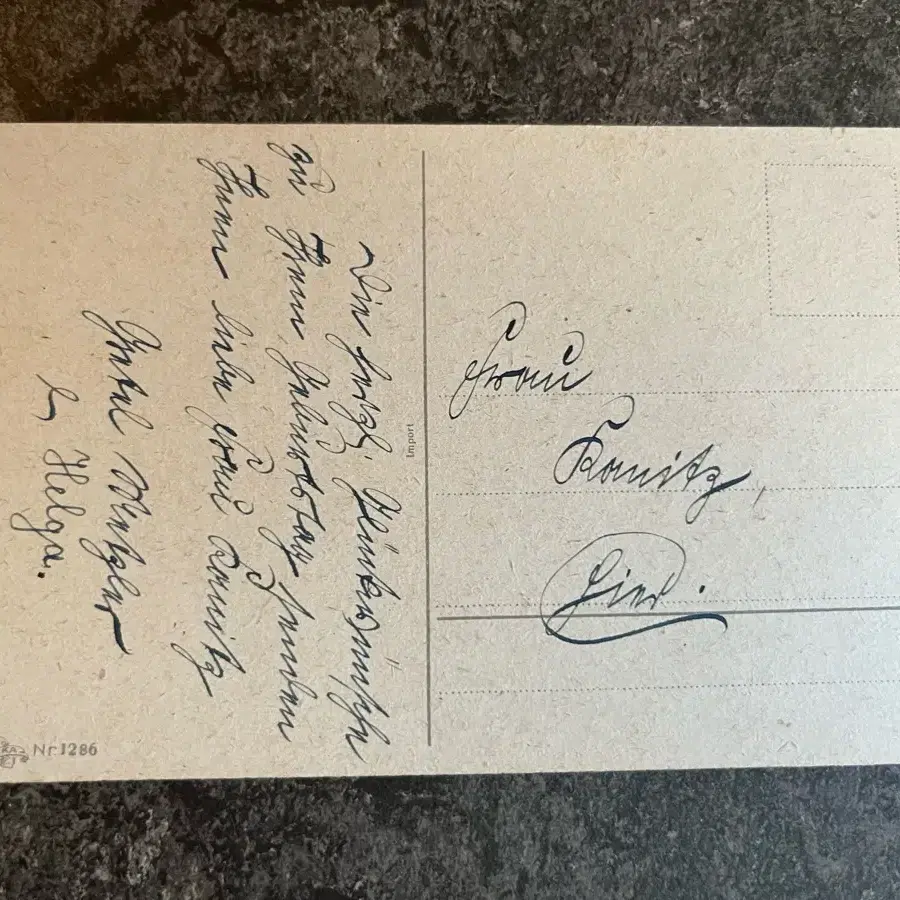 Die herzl. Glückwünsche
zu Ihrem Geburtstag senden
Ihnen liebe Frau Kanitz
Gretel Metzler
u. Helga.
Import
Frau
Kanitz,
Hier.
Nr 1286